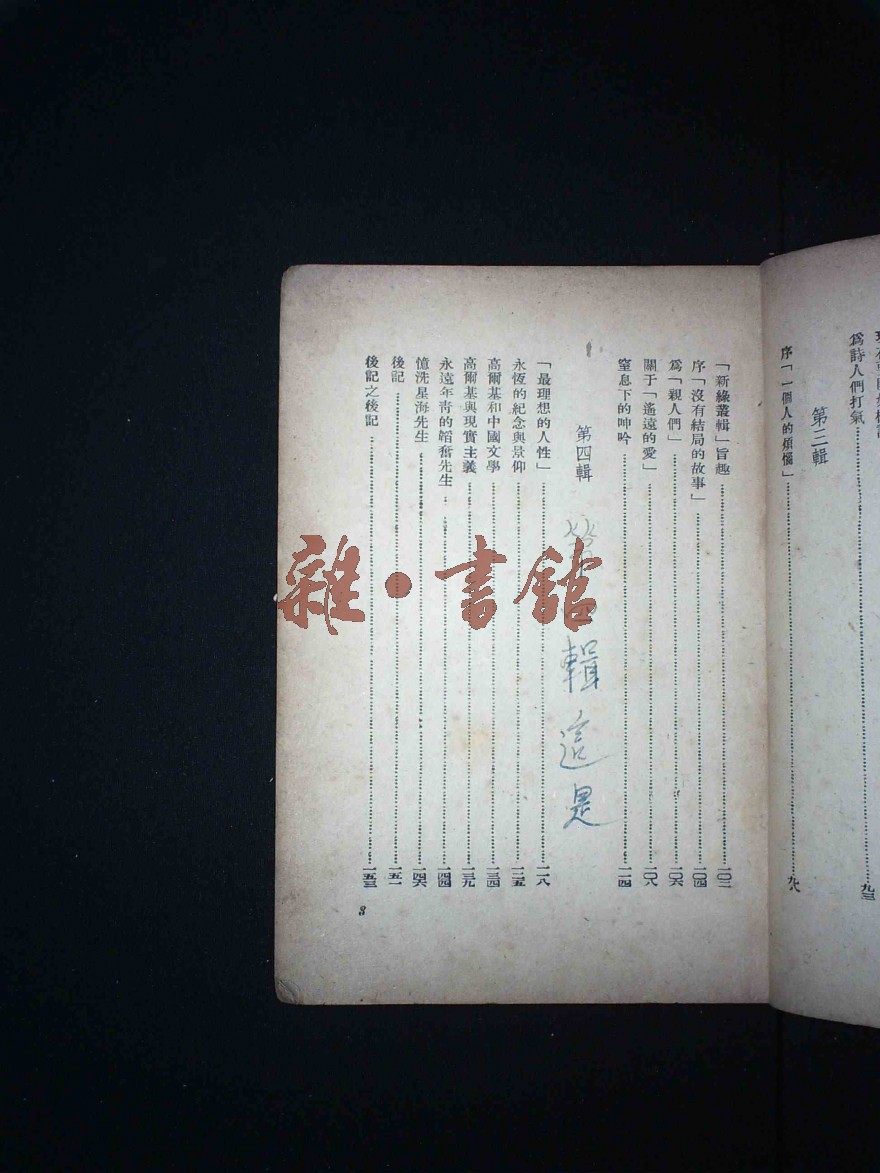 爲詩人們打氣……九三
第三輯
序「一個人的煩惱」……九七
「新綠叢輯」旨趣……一〇二
序「沒有結局的故事」……一〇四
爲「親人們」……一〇六
關于「遙遠的愛」……一〇八
窒息下的呻吟……一一四
第四輯
輯這是
「最理想的人性」……一一八
永恆的紀念與景仰……一二五
高爾基和中國文學……一三四
高爾基與現實主義……一三九
永遠年青的韜奮先生……一四四
憶洗星海先生……一四六
後記……一五一
後記之後記……一五三
3
雜·書館